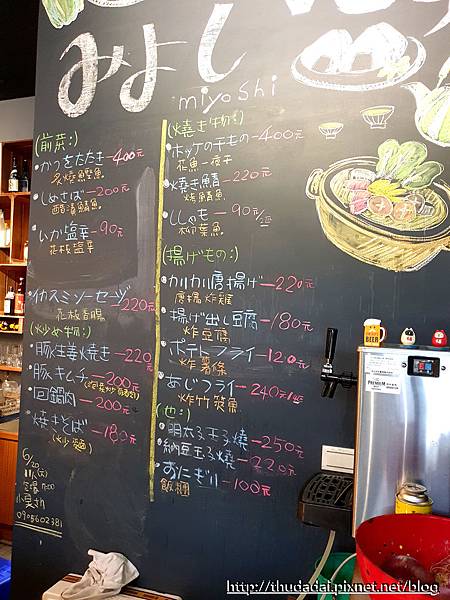 みよし
miyoshi
(前菜:)
かつをたたき—400元
炙燒鰹魚
しめさば—200元
醋漬鯖魚
いか塩辛—90元
花枝塩辛
イカスミソーセージ 220元
花枝香腸
(炒め物:)
豚生姜焼き—220元
豚キムチ—200元
回鍋肉—200元
焼きそば—180元
(炒麵)
(焼き物:)
ホッケの干もの—400元
花魚一夜干
焼き鯖—220元
烤鯖魚
ししゃも—90元
柳葉魚
(揚げもの:)
カリカリ唐揚げ—220元
唐揚炸雞
揚げ出し豆腐—180元
炸豆腐
ポテトフライ—120元
炸薯條
あじフライ—240元
炸竹筴魚
(他:)
明太子玉子燒—250元
納豆玉子燒—220元
おにぎり—100元
飯糰
6/20
0905602381
BEER
PREMIUM
http://thudadai.pixnet.net/blog